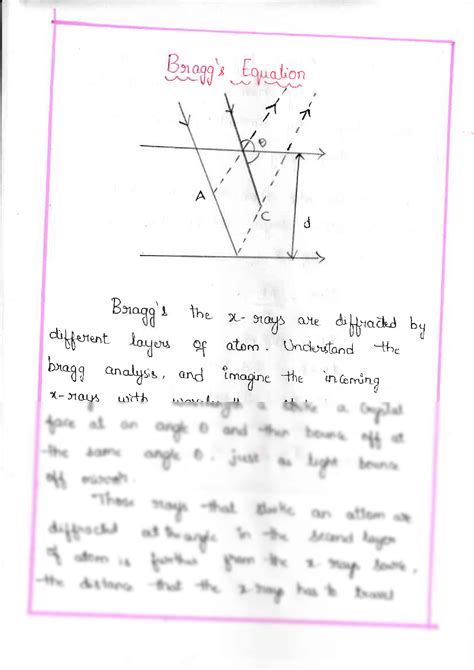 Bragg's Equation
θ
A
C
d
Bragg's the x-rays are diffracted by
different layers of atom. Understand the
bragg analysis, and imagine the incoming
x-rays with wavelength a strike a crystal
face at an angle θ and then bounce off at
the same angle θ, just as light bounce
off mirror.
Those rays that strike an attom are
diffracted at the angle in the second layer
of atom is further from the x-rays
the distance that the x-ray has to travel